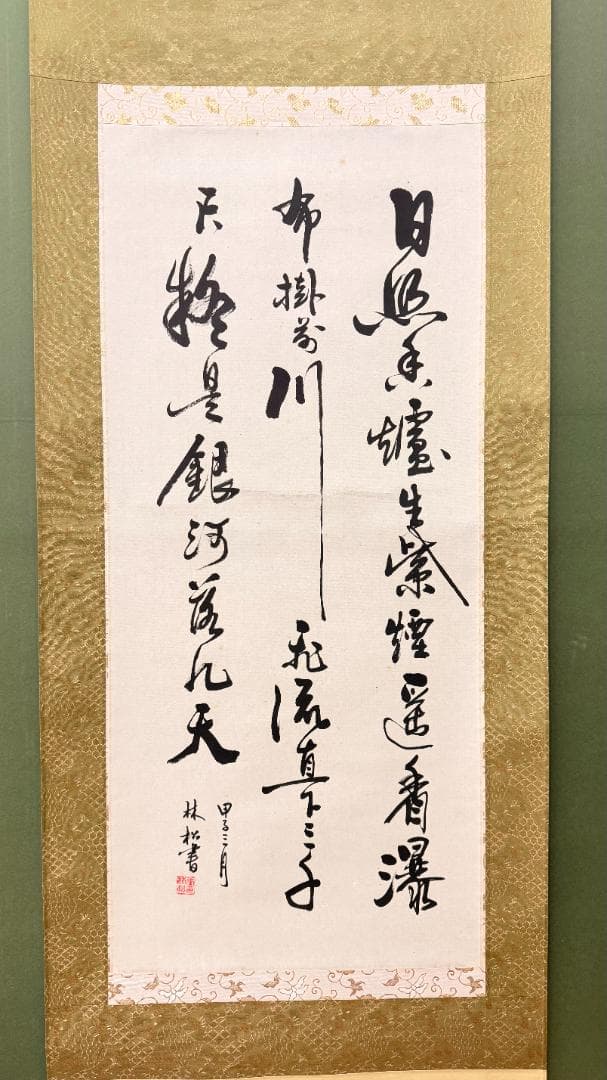 日照香爐生紫煙遥看瀑
布掛前川飛流直下三千
尺疑是銀河落九天
甲子三月
林松書